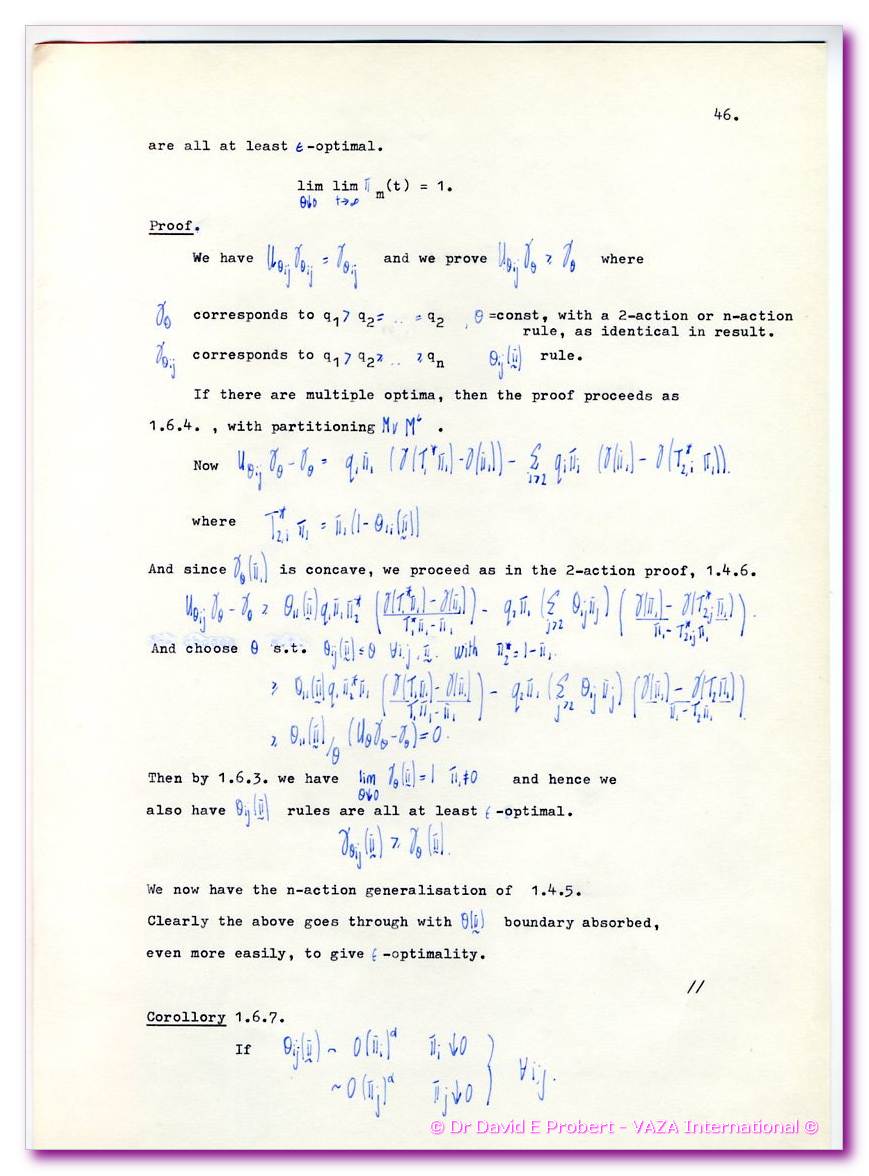 46.
are all at least ε-optimal.
lim lim π_m(t) = 1.
θ↓0 t→∞
Proof.
We have U_θij γ_θij = γ_θij and we prove U_θij γ_θ ≥ γ_θ where
γ_θ corresponds to q₁ > q₂ = .. = q₂ , θ =const, with a 2-action or n-action
rule, as identical in result.
γ_θij corresponds to q₁ > q₂ ≥ .. ≥ q_n θ_ij(π) rule.
If there are multiple optima, then the proof proceeds as
1.6.4. , with partitioning M v Mᶜ .
Now U_θij γ_θ - γ_θ = q₁π₁ (γ(T₁*π₁) - γ(π₁)) - Σ_{i≥2} q_iπ_i (γ(π₁) - γ(T*_{2,i} π₁)).
where T*_{2,i} π₁ = π₁(1 - θ_{1i}(π))
And since γ_θ(π₁) is concave, we proceed as in the 2-action proof, 1.4.6.
U_θij γ_θ - γ_θ ≥ θ₁₁(π) q₁π₁π₂* ( (γ(T₁*π₁) - γ(π₁)) / (T₁*π₁ - π₁) ) - q₂π₁ (Σ_{j≥2} θ_ij π_j) ( (γ(π₁) - γ(T*_{2,j} π₁)) / (π₁ - T*_{2,j} π₁) ).
And choose θ s.t. θ_ij(π) ≤ θ ∀ i,j , π. with π₂* = 1 - π₁.
≥ θ₁₁(π) q₁π₂*π₁ ( (γ(T₁π₁) - γ(π₁)) / (T₁π₁ - π₁) ) - q₂π₁ (Σ_{j≥2} θ_ij π_j) ( (γ(π₁) - γ(T₂π₁)) / (π₁ - T₂π₁) ).
≥ θ₁₁(π)/θ (U_θ γ_θ - γ_θ) = 0.
Then by 1.6.3. we have lim γ_θ(π) = 1 π₁ ≠ 0 and hence we
θ↓0
also have θ_ij(π) rules are all at least ε-optimal.
γ_θij(π) ≥ γ_θ(π).
We now have the n-action generalisation of 1.4.5.
Clearly the above goes through with θ(π) boundary absorbed,
even more easily, to give ε-optimality.
//
Corollory 1.6.7.
If θ_ij(π) ~ O(π_i)^α π_i ↓ 0 } ∀ i,j.
~ O(π_j)^α π_j ↓ 0
© Dr David E Probert - VAZA International ©